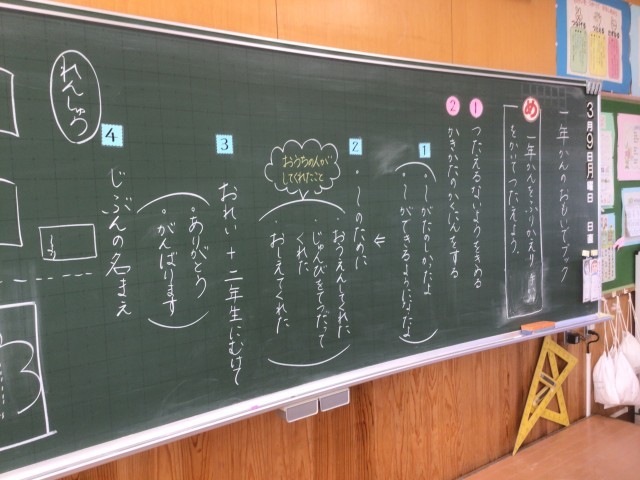 3月9日月曜日
日直
一年かんのおもいでブック
め
一年かんをふりかえり
をかいてつたえよう。
1
つたえるないようをきめる
2
かきかたのかくにんをする
1
・〜がたのしかったよ
・〜ができるようになった
2
・〜のために
おうちの人が
してくれたこと
おうえんしてくれた
・じゅんびをてつだって
くれた
おしえてくれた
3
おれい+二年生にむけて
・ありがとう
・がんばります
4
じぶんの名まえ
れんしゅう